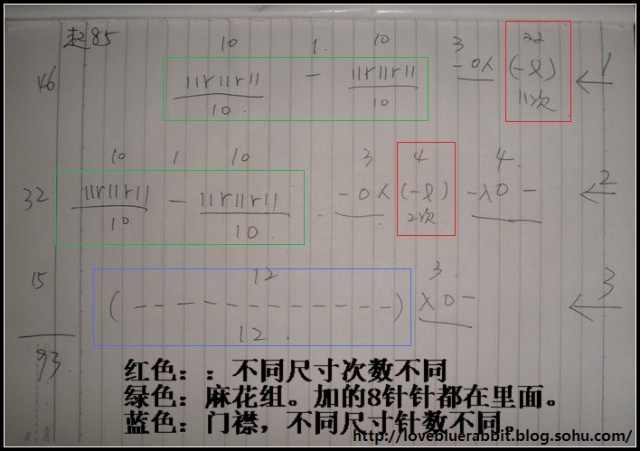 起85
10 1 10 3 22
46 11r11r11 - 11r11r11 - O人 (-ღ) ← 1
10 10 11次
10 1 10 3 4 4
32 11r11r11 - 11r11r11 - O人 (-ღ) -入O- ← 2
10 10 2次
15 12 3
(------------) 入O- ← 3
12
93
红色：：不同尺寸次数不同
绿色：麻花组。加的8针针都在里面。
蓝色：门襟，不同尺寸针数不同。
http://lovebluerabbit.blog.sohu.com/